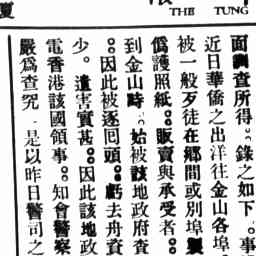 THE TUNG
面調查所得。。錄之如下。事
近日華僑之出洋往金山各埠
被一般歹徒在鄉間或別埠製
僞護照紙。。販賣與承受者。。
到金山時。。始被該地政府查
。。因此被逐囘頭。。虧去舟資
少。遺害實甚。。因此該地政
電香港該國領事。。知會警察
嚴爲查究。是以昨日警司之